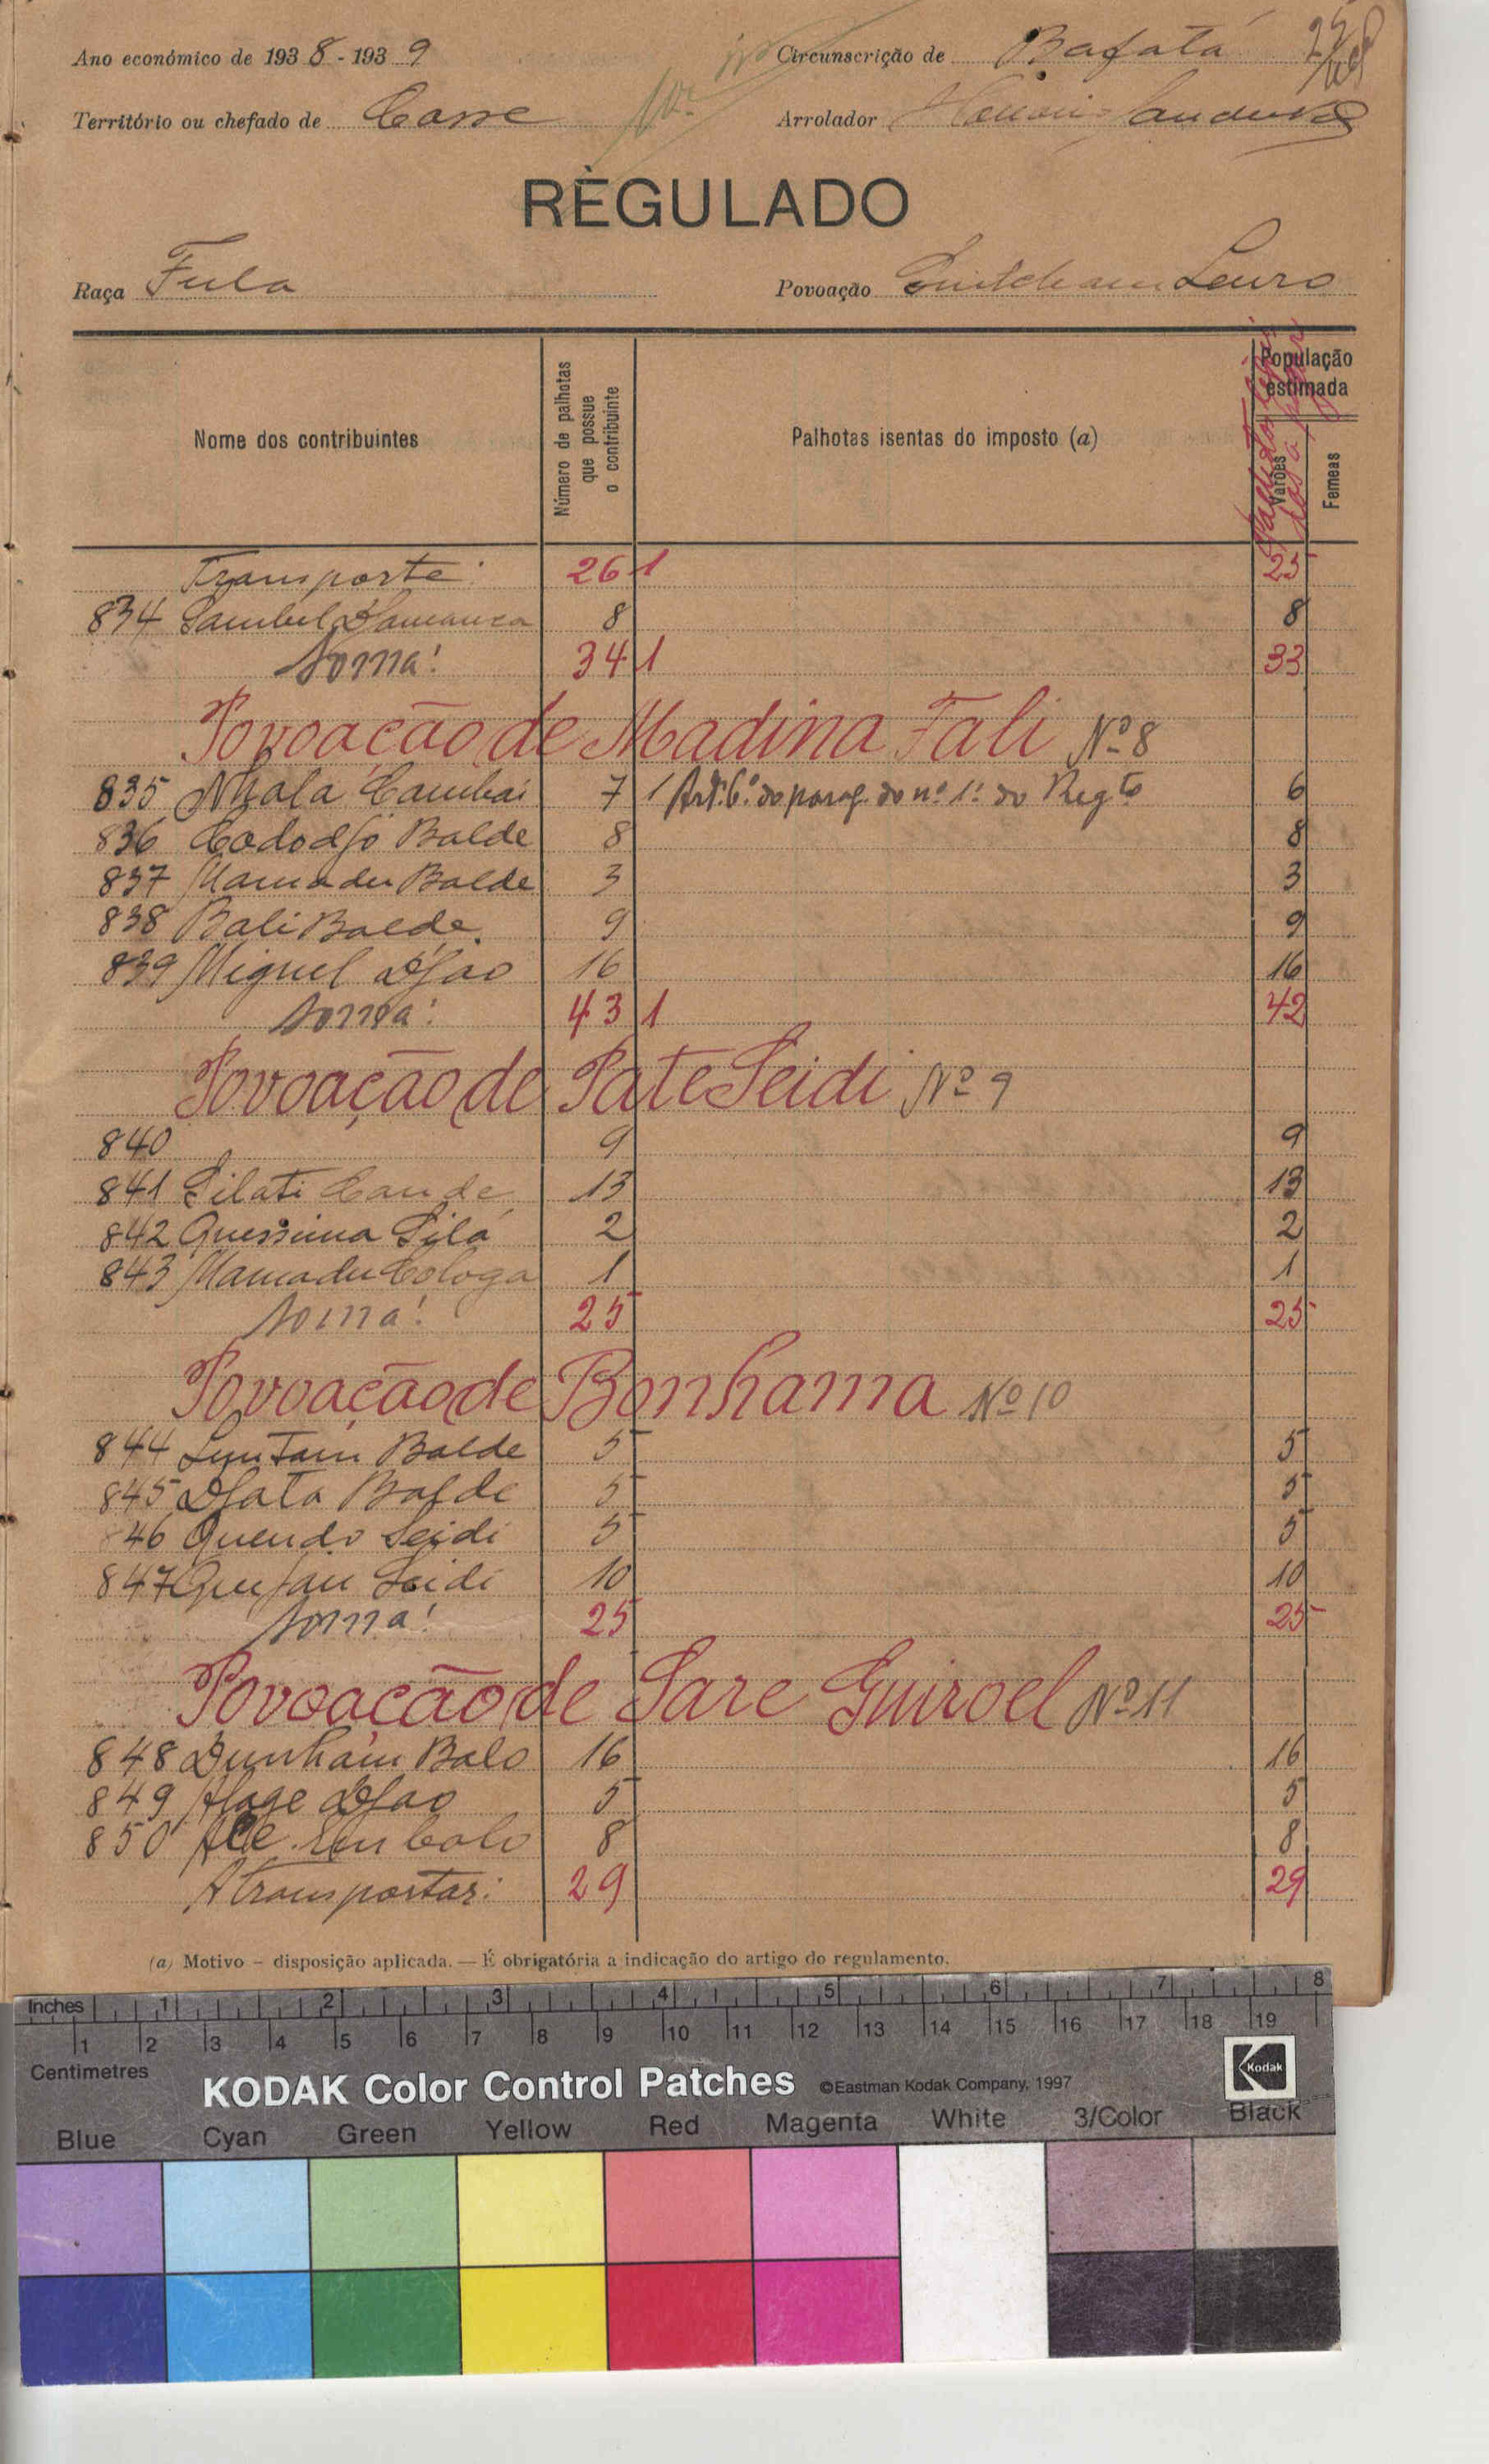 Ano económico de 1938-1939
Circunscrição de Bafatá
Território ou chefado de Casse
Arrolador
RÈGULADO
Raça Fula
Povoação Leuro
Nome dos contribuintes
Número de palhotas que possue o contribuinte
Palhotas isentas do imposto (a)
População estimada
Varões
Femeas
Transporte: 26 1 25
834 Sambel 8 8
Soma! 34 1 33
Povoação de Madina Fali Nº 8
835 Nhala Cambai 7 1 Artº 6.º do parag. do nº 1.º do Regto 6
836 Cododjo Balde 8 8
837 Mamadu Balde 3 3
838 Bali Balde 9 9
839 Miguel Djao 16 16
Soma! 43 1 42
Povoação de Pate Seidi Nº 9
840 9 9
841 Silati Cande 13 13
842 Quessima Silá 2 2
843 Mamadu Cologa 1 1
Soma! 25 25
Povoação de Bonhama Nº 10
844 Suntam Balde 5 5
845 Djata Balde 5 5
846 Quendo Seidi 5 5
847 Seidi 10 10
Soma! 25 25
Povoação de Sare Guiroel Nº 11
848 Dunham Balo 16 16
849 Alage Djao 5 5
850 Embalo 8 8
A transportar: 29 29
(a) Motivo – disposição aplicada. — É obrigatória a indicação do artigo do regulamento.
Inches 1 2 3 4 5 6 7 8
1 2 3 4 5 6 7 8 9 10 11 12 13 14 15 16 17 18 19
Centimetres
KODAK Color Control Patches ©Eastman Kodak Company, 1997 Kodak
Blue Cyan Green Yellow Red Magenta White 3/Color Black